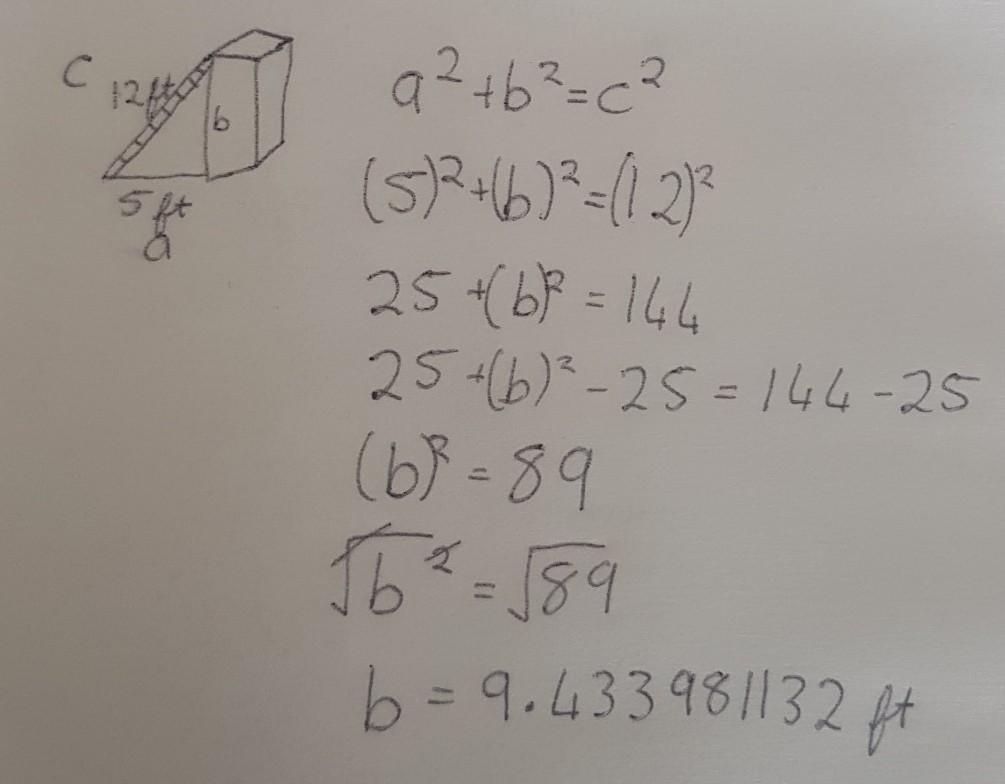 c
12ft
b
5 ft
a
a² + b² = c²
(5)² + (b)² = (12)²
25 + (b)² = 144
25 + (b)² - 25 = 144 - 25
(b)² = 89
√b² = √89
b = 9.433981132 ft